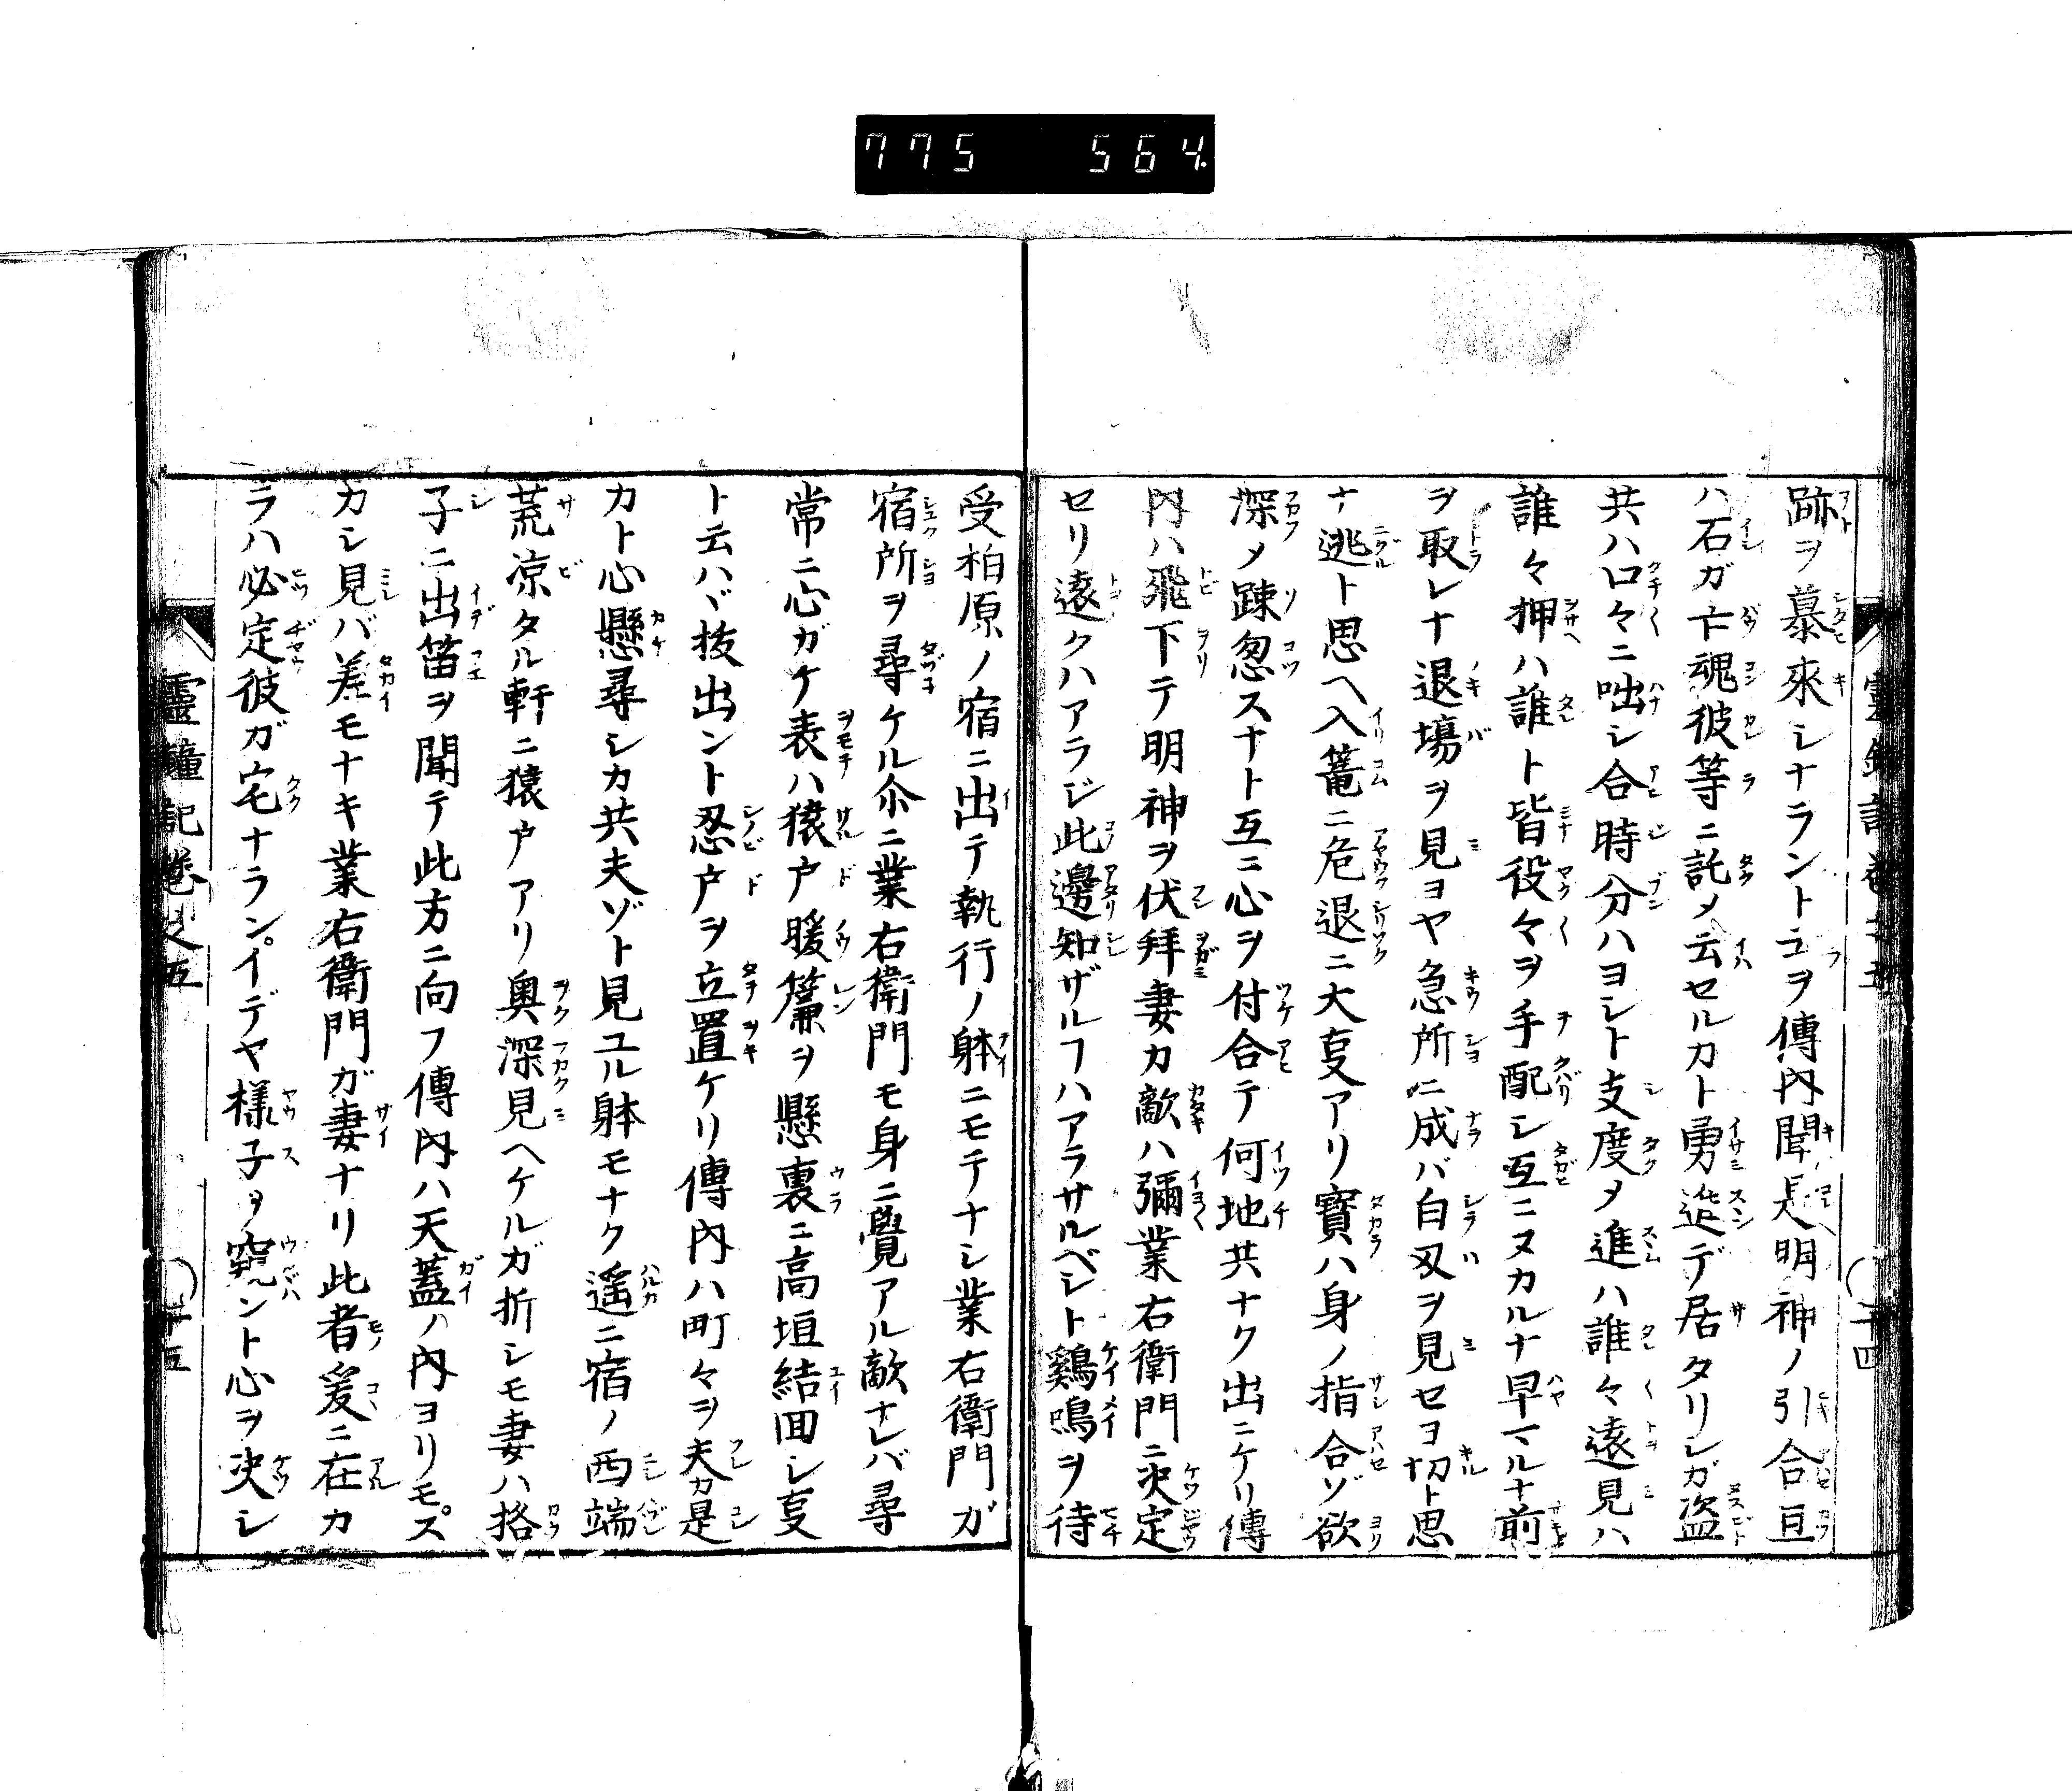 775 564
跡ヲ慕來シナラントヱヲ傳內聞是明神ノ引合亘
ハ石ガ亡魂彼等ニ託メ云セルカト勇進デ居タリシガ盜
共ハ口々ニ咄シ合時分ハヨシト支度メ進ハ誰々遠見ハ
誰々押ハ誰ト皆役々ヲ手配シ互ニヌカルナ早マルナ前
ヲ取レナ退場ヲ見ヨヤ急所ニ成バ白刄ヲ見セヨ切ト思
ナ逃ト思ヘ入篭ニ危退ニ大叓アリ寳ハ身ノ指合ゾ欲
深メ踈怱スナト互ニ心ヲ付合テ何地共ナク出ニケリ傳
內ハ飛下テ明神ヲ伏拜妻カ敵ハ彌業右衛門ニ决定
セリ遠クハアラジ此邊知ザルフハアラサルベシト鷄鳴ヲ待
受柏原ノ宿ニ出テ執行ノ躰ニモテナシ業右衛門ガ
宿所ヲ尋ケル尒ニ業右衛門モ身ニ覺アル敵ナレバ尋
常ニ心ガケ表ハ猿戸暖簾ヲ懸裏ニ高垣結回シ叓
ト云ハヾ抜出ント忍戸ヲ立置ケリ傳內ハ町々ヲ夫カ是
カト心懸尋シカ共夫ゾト見ユル躰モナク遥ニ宿ノ西端
荒凉タル軒ニ猿戸アリ奥深見ヘケルガ折シモ妻ハ格
子ニ出笛ヲ聞テ此方ニ向フ傳內ハ天蓋ノ內ヨリモス
カシ見バ差モナキ業右衛門ガ妻ナリ此者爰ニ在カ
ラハ必定彼ガ宅ナランイデヤ樣子ヲ窺ント心ヲ决シ
靈鐘記卷之五
廿五